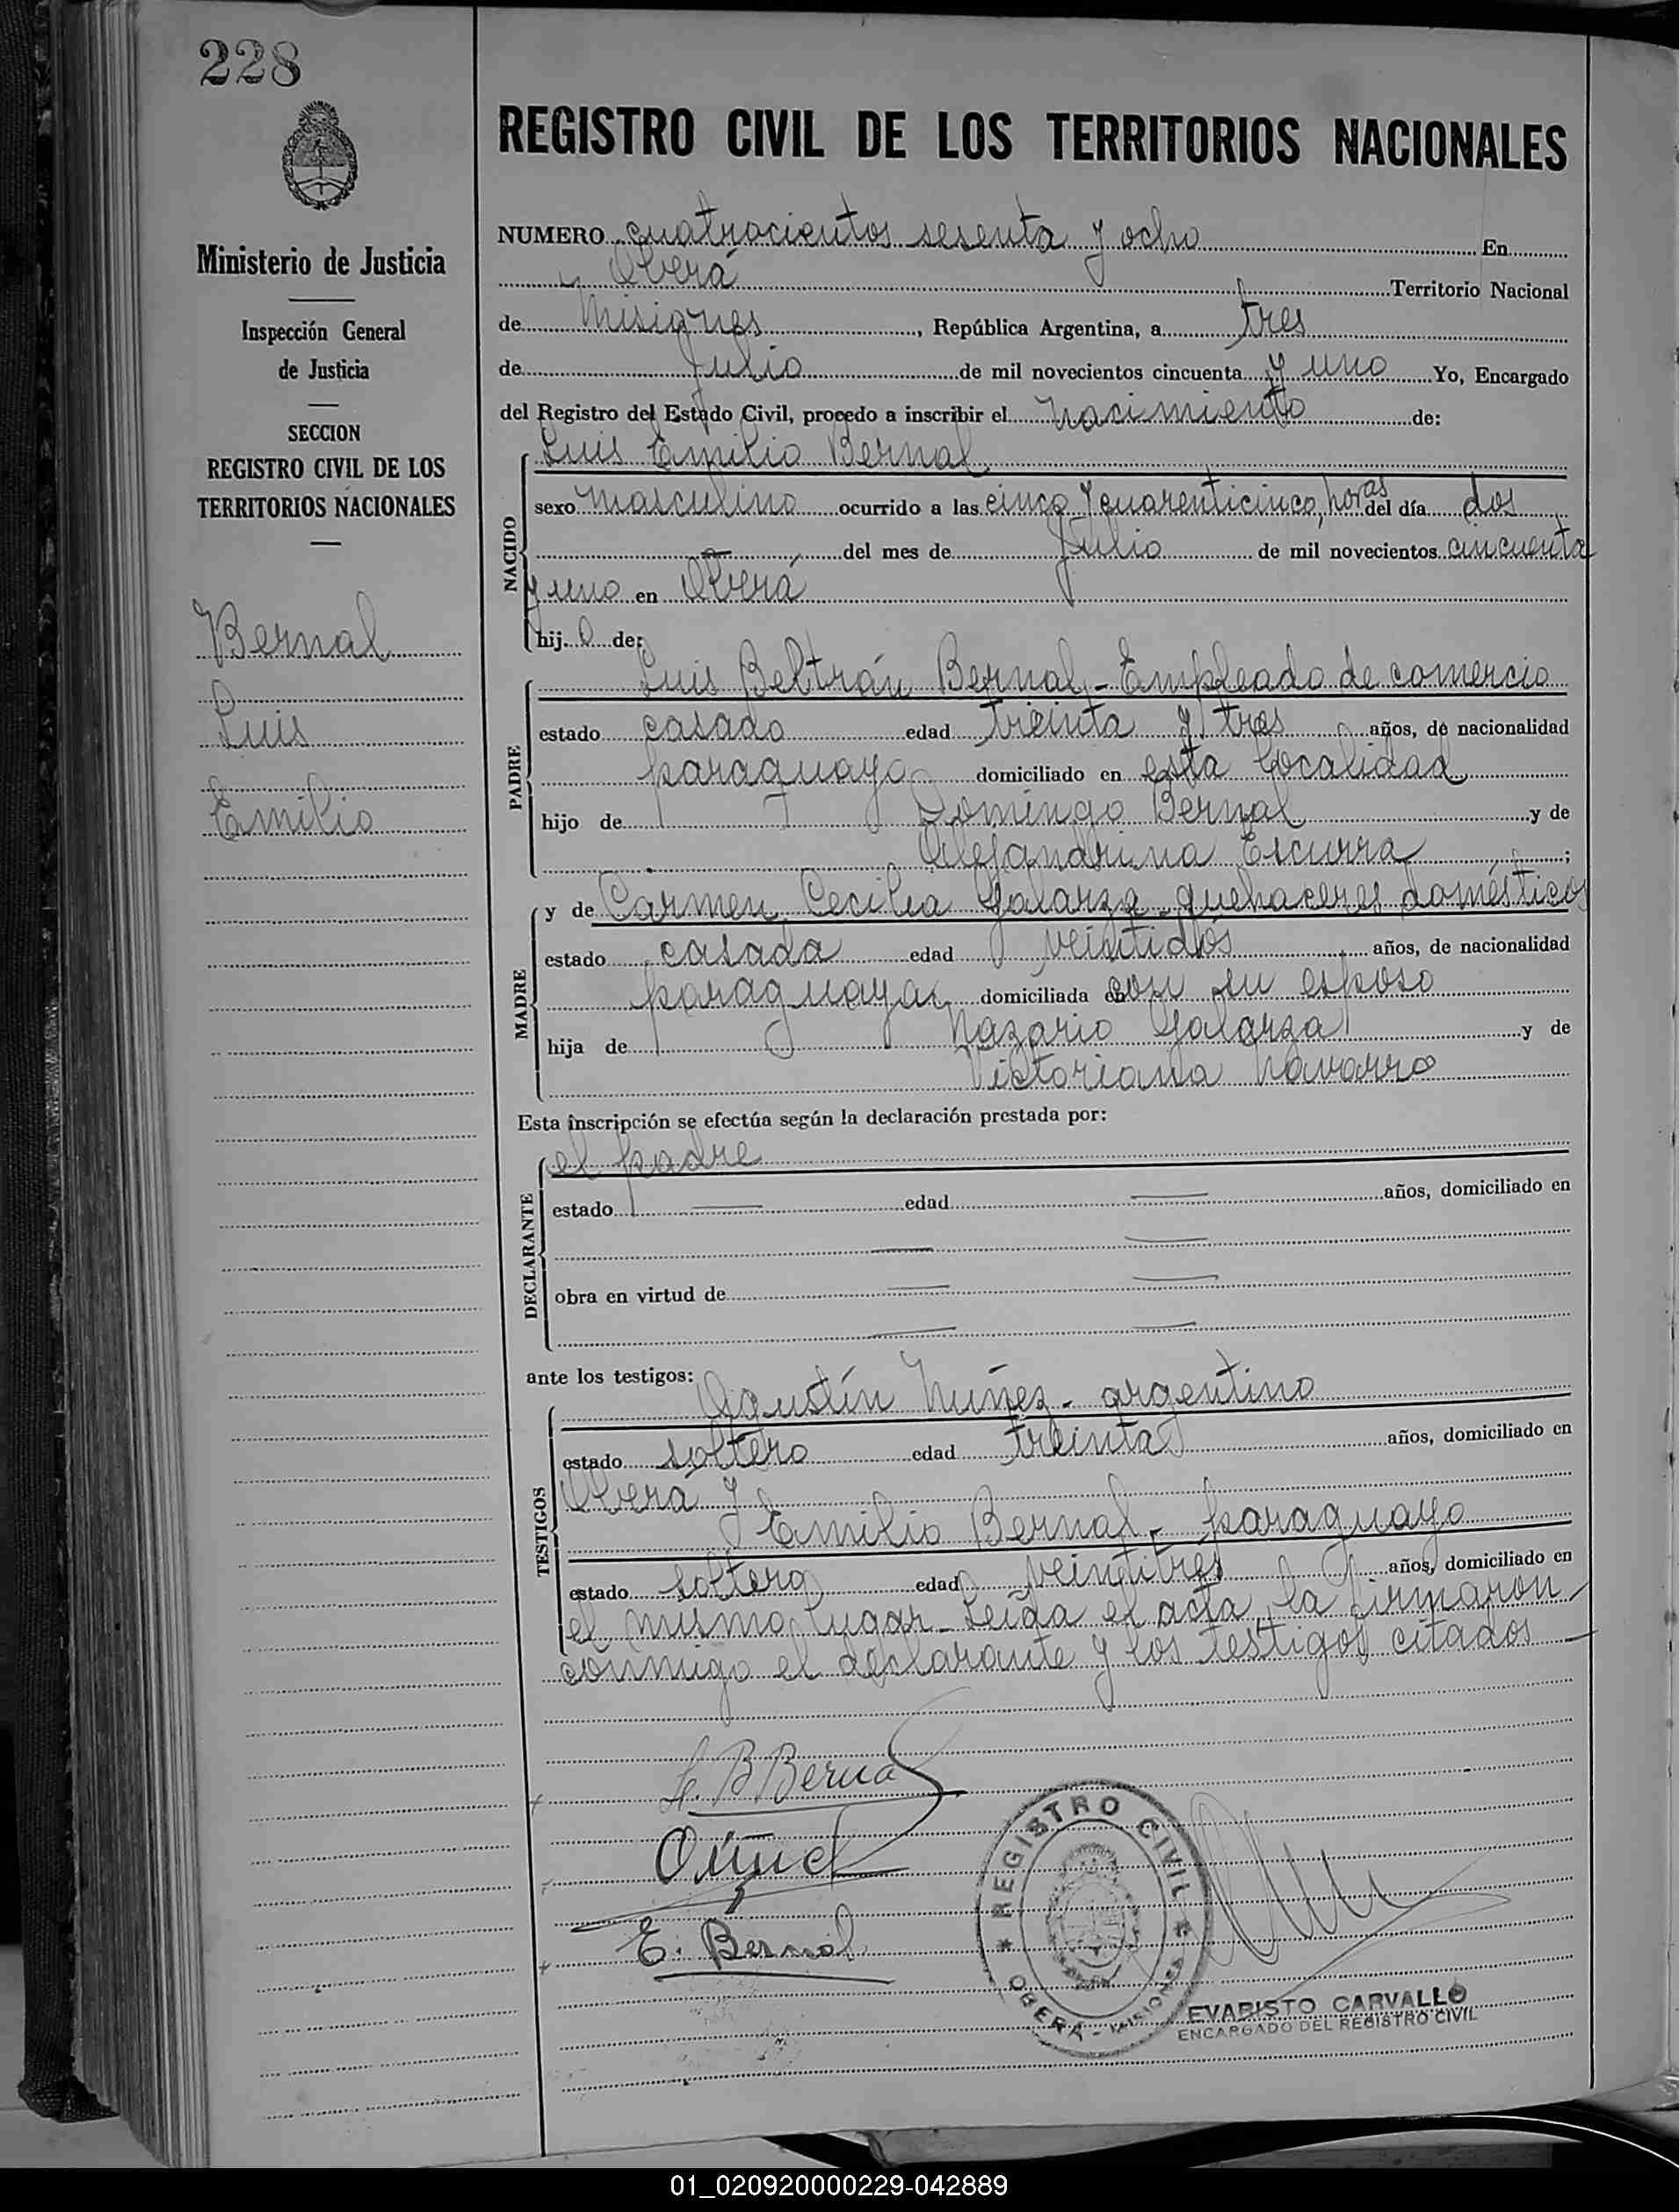 228
Ministerio de Justicia
Inspección General
de Justicia
SECCION
REGISTRO CIVIL DE LOS
TERRITORIOS NACIONALES
Bernal
Luis
Emilio
REGISTRO CIVIL DE LOS TERRITORIOS NACIONALES
NUMERO cuatrocientos sesenta y ocho En
Oberá Territorio Nacional
de Misiones, República Argentina, a tres
de Julio de mil novecientos cincuenta y uno Yo, Encargado
del Registro del Estado Civil, procedo a inscribir el nacimiento de:
Luis Emilio Bernal
NACIDO
sexo masculino ocurrido a las cinco y cuarenticinco, horas del día dos
del mes de Julio de mil novecientos cincuenta
y uno en Oberá
hij o de:
Luis Beltrán Bernal - Empleado de comercio
PADRE
estado casado edad treinta y tres años, de nacionalidad
paraguayo domiciliado en esta localidad
hijo de Domingo Bernal y de
Alejandrina Escurra;
y de Carmen Cecilia Galarza - quehaceres domésticos
MADRE
estado casada edad veintidós años, de nacionalidad
paraguaya domiciliada con su esposo
hija de Nazario Galarza y de
Victoriana Navarro
Esta inscripción se efectúa según la declaración prestada por:
el padre
DECLARANTE
estado — edad — años, domiciliado en
obra en virtud de
ante los testigos:
Agustín Núñez - argentino
TESTIGOS
estado soltero edad treinta años, domiciliado en
Oberá y
Emilio Bernal - paraguayo
estado soltero edad veintitres años, domiciliado en
el mismo lugar - Leída el acta, la firmaron
conmigo el declarante y los testigos citados
L. B Bernal
E. Bernal
REGISTRO CIVIL
OBERÁ - MISIONES
EVARISTO CARVALLO
ENCARGADO DEL REGISTRO CIVIL
01_020920000229-042889